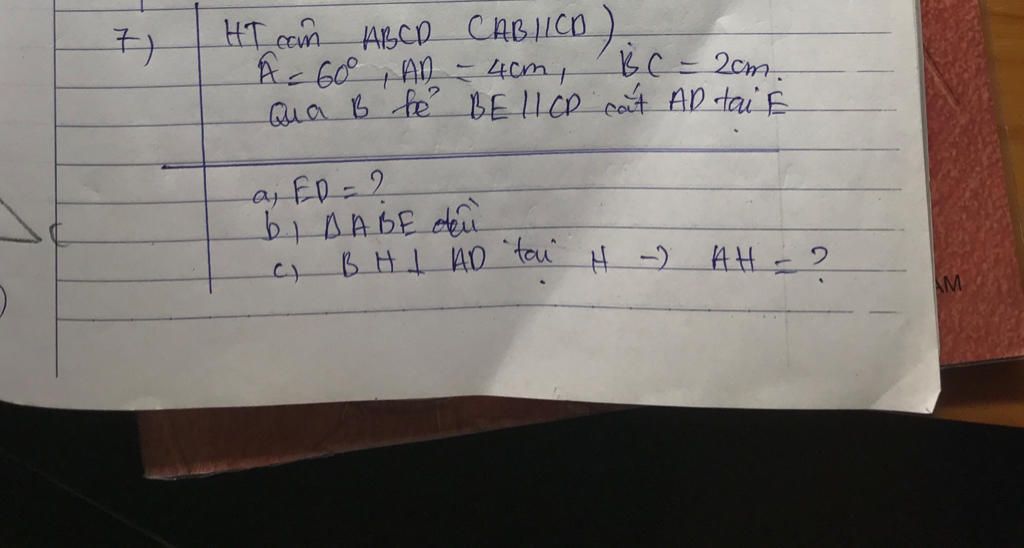 7) HT cân ABCD (AB//CD)
Â = 60°, AD = 4cm, BC = 2cm.
Qua B kẻ BE//CD cắt AD tại E
a, ED = ?
b, ΔABE đều
c, BH ⊥ AD tại H → AH = ?
AM